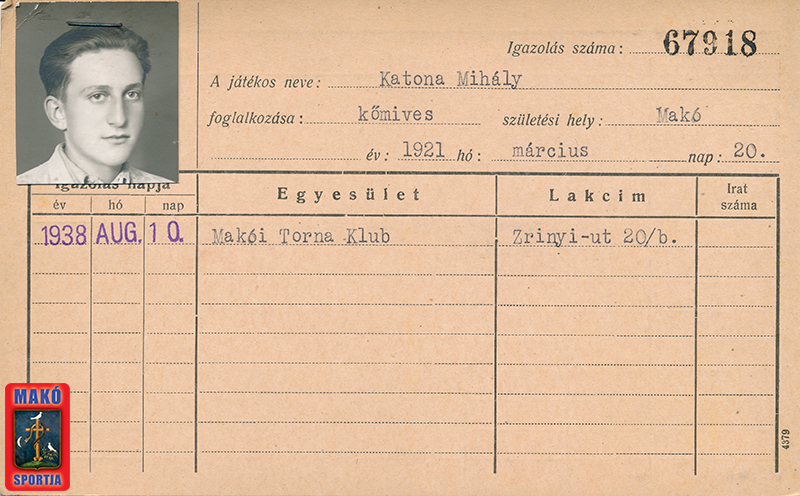 Igazolás száma: 67918
A játékos neve: Katona Mihály
foglalkozása: kőmives születési hely: Makó
év: 1921 hó: március nap: 20.
Igazolás napja
Egyesület Lakcim Irat száma
év hó nap
1938 AUG. 10. Makói Torna Klub Zrinyi-ut 20/b.
4379
MAKÓ
SPORTJA